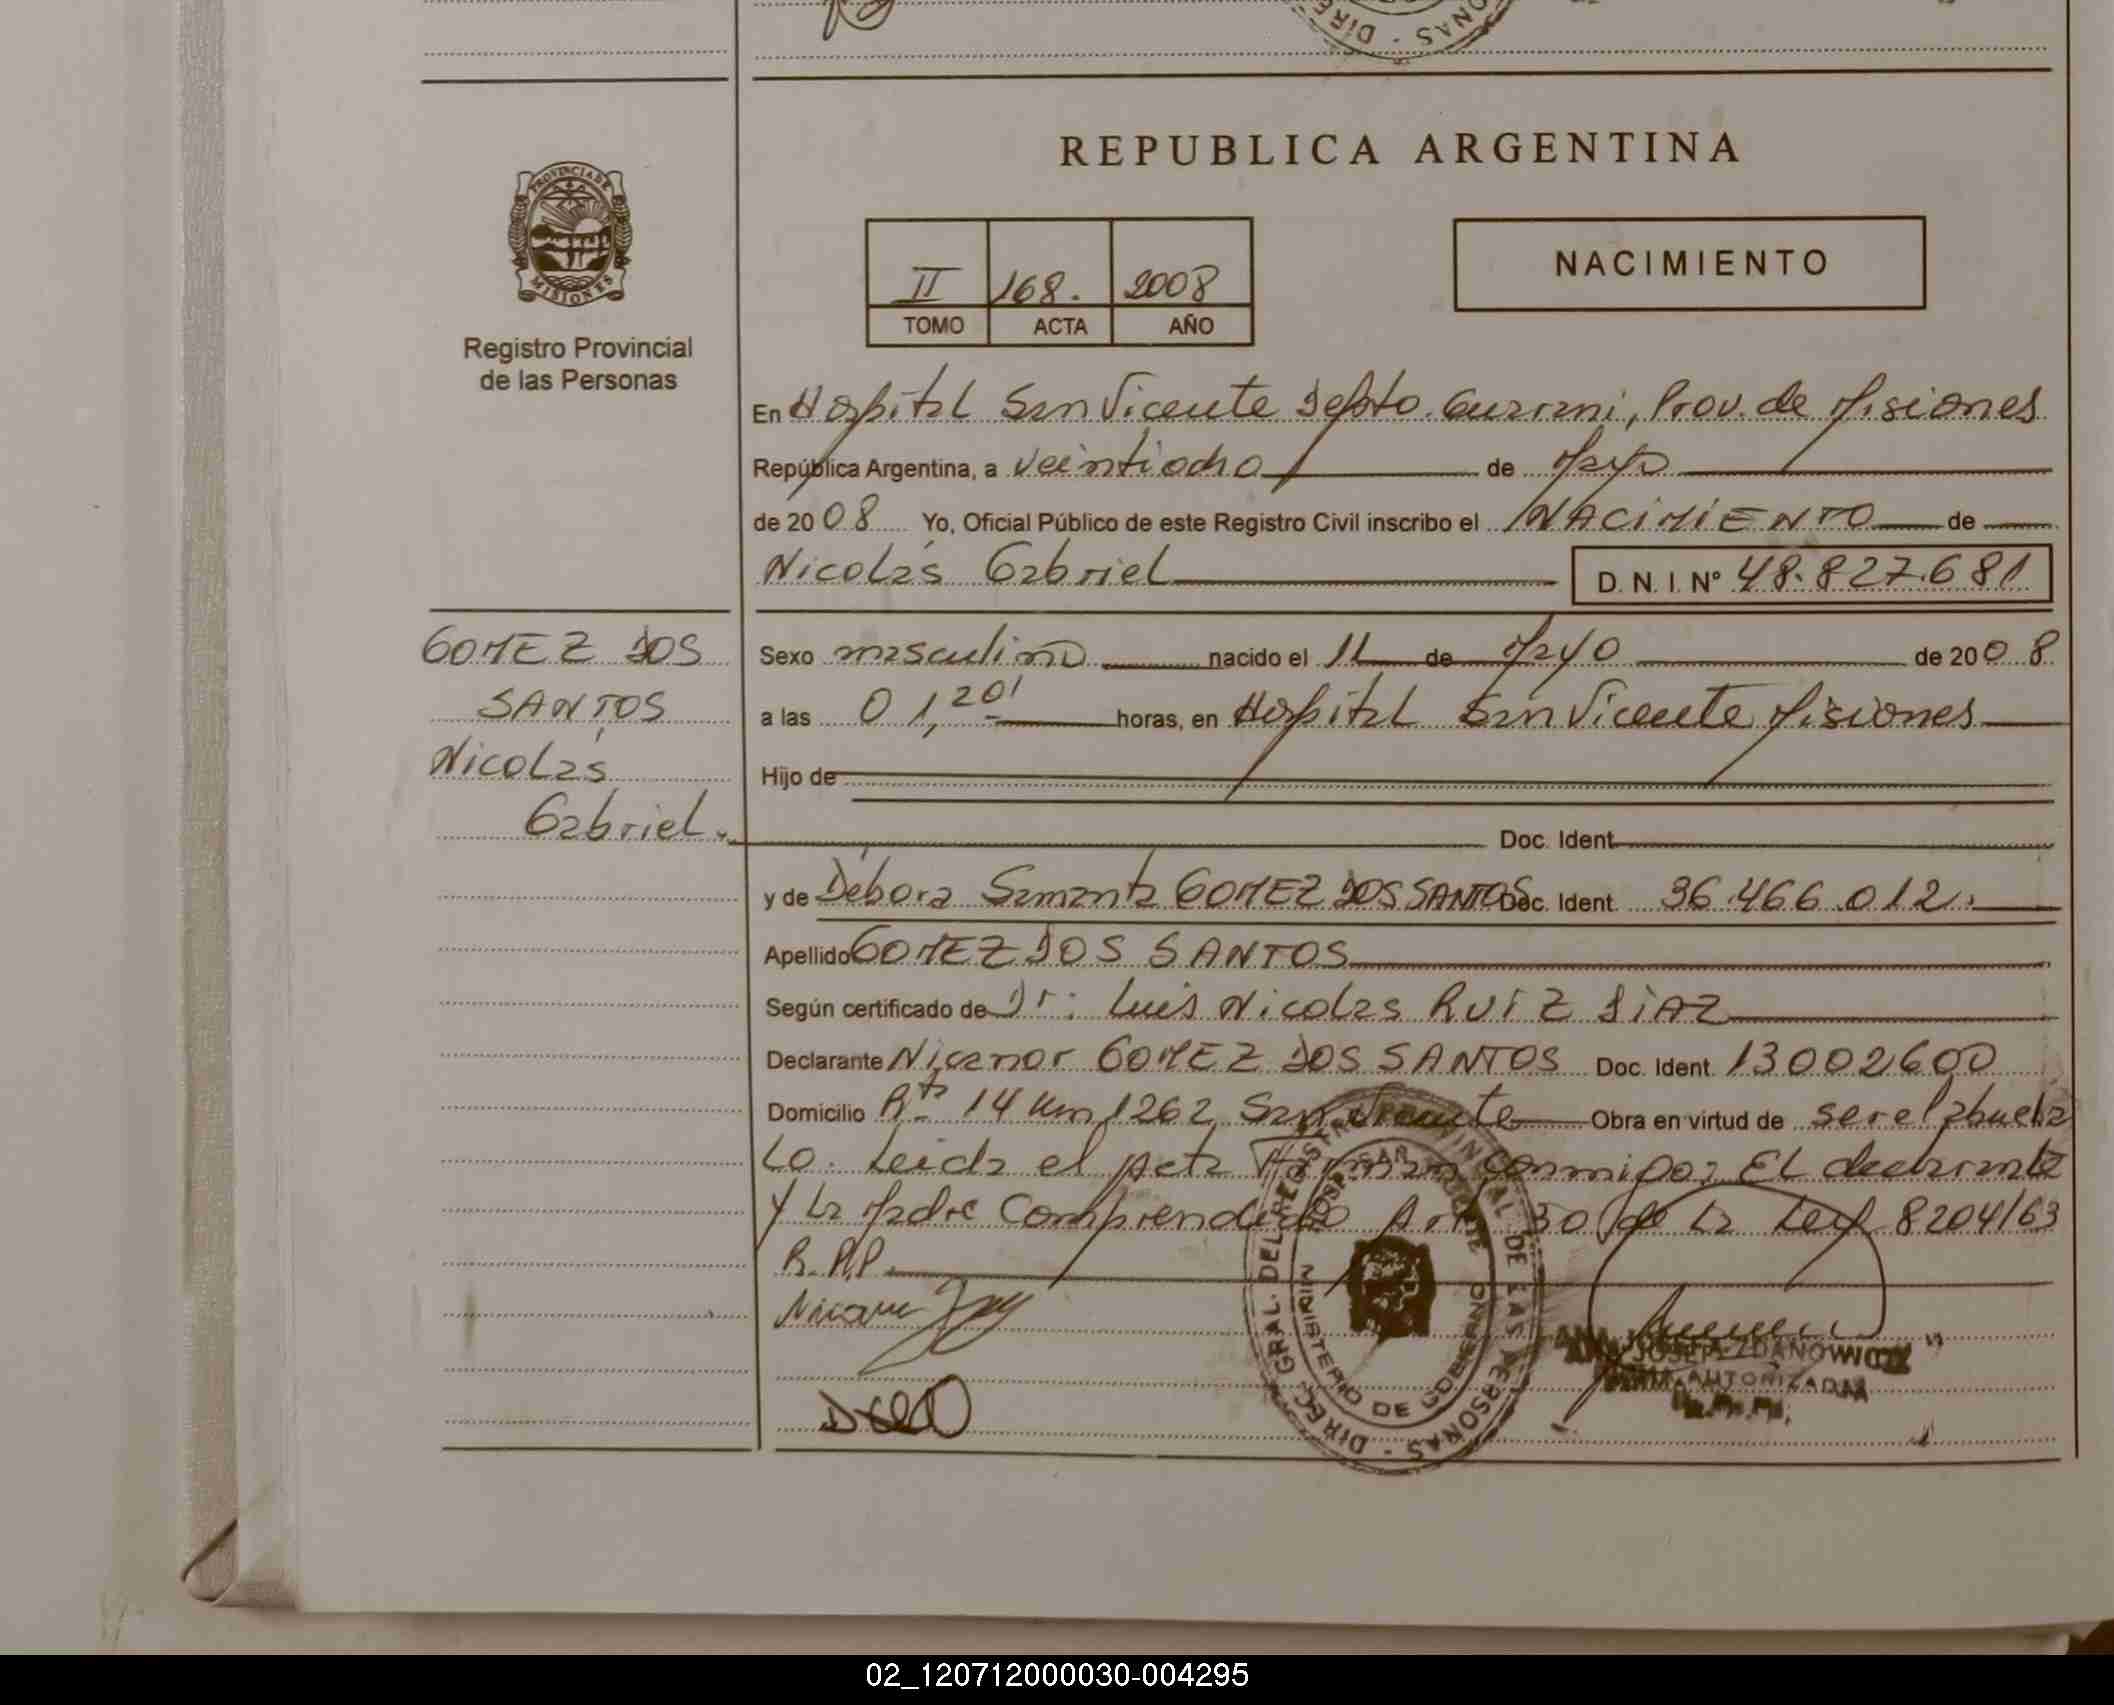 REPUBLICA ARGENTINA
PROVINCIA DE
MISIONES
Registro Provincial
de las Personas
II 168. 2008
TOMO ACTA AÑO
NACIMIENTO
En Hospital San Vicente Depto. Guarani, Prov. de Misiones
República Argentina, a veintiocho de Mayo
de 2008 Yo, Oficial Público de este Registro Civil inscribo el NACIMIENTO de
Nicolás Gabriel D. N. I. Nº 48.827.681
GOMEZ DOS
SANTOS
Nicolás
Gabriel.
Sexo masculino nacido el 11 de Mayo de 2008
a las 01,20' horas, en Hospital San Vicente Misiones
Hijo de
Doc. Ident.
y de Débora Samanta GOMEZ DOS SANTOS Doc. Ident. 36.466.012.
Apellido GOMEZ DOS SANTOS
Según certificado de Dr: Luis Nicolas RUIZ DIAZ
Declarante Nicanor GOMEZ DOS SANTOS Doc. Ident. 13002600
Domicilio Rta 14 Km 1262 San Vicente Obra en virtud de ser el abuelo
Lo. Leida el Acta Firman conmigo; EL declarante
y la Madre Comprendido Art. 30 de la Ley 8204/63
R.P.P.
DIREC. GRAL. DEL REGISTRO PROVINCIAL DE LAS PERSONAS
MINISTERIO DE GOBIERNO
HOSP. SAN VICENTE
ZDANOWICZ
AUTORIZADA
02_120712000030-004295